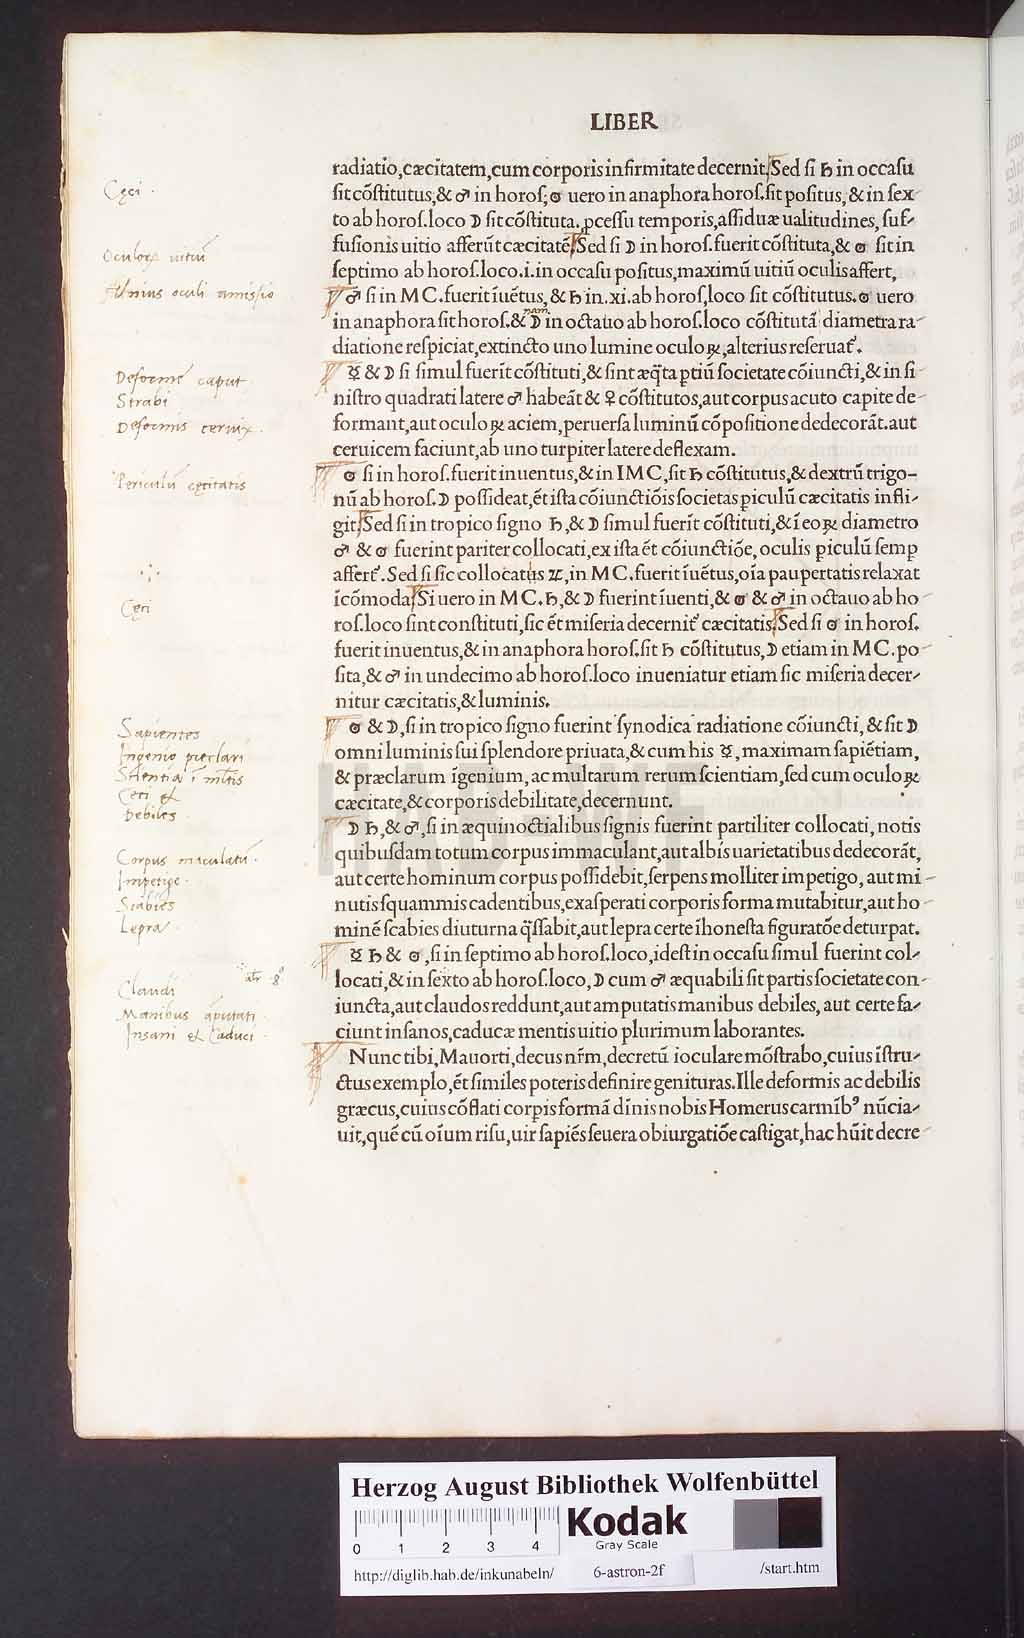 LIBER
radiatio,cæcitatem,cum corporis infirmitate decernit.Sed ſi ♄ in occaſu
ſit cõſtitutus,& ♂ in horoſ; ☉ uero in anaphora horoſ.ſit poſitus,& in ſex-
to ab horoſ.loco ☽ ſit cõſtituta,ꝓceſſu temporis,aſſiduæ ualitudines, ſuf-
fuſionis uitio afferũt cæcitatẽ.Sed ſi ☽ in horoſ.fuerit cõſtituta,& ☉ ſit in
ſeptimo ab horoſ.loco.i.in occaſu poſitus,maximũ uitiũ oculis affert,
♂ ſi in MC.fuerit ĩuẽtus,& ♄ in.xi.ab horoſ,loco ſit cõſtitutus.☉ uero
in anaphora ſit horoſ.& ☽ in octauo ab horoſ.loco cõſtitutã diametra ra-
diatione reſpiciat,extincto uno lumine oculoꝝ,alterius reſeruat᷑.
☿ & ☽ ſi ſimul fuerĩt cõſtituti,& ſint æq̃ta ꝑtiũ ſocietate cõiuncti,& in ſi-
niſtro quadrati latere ♂ habeãt & ♀ cõſtitutos,aut corpus acuto capite de-
formant,aut oculoꝝ aciem,peruerſa luminũ cõpoſitione dedecorãt.aut
ceruicem faciunt,ab uno turpiter latere deflexam.
☉ ſi in horoſ.fuerit inuentus,& in IMC,ſit ♄ cõſtitutus,& dextrũ trigo-
nũ ab horoſ.☽ poſſideat,ẽt iſta cõiunctiõis ſocietas ꝑiculũ cæcitatis infli-
git.Sed ſi in tropico ſigno ♄,& ☽ ſimul fuerĩt cõſtituti,& ĩ eoꝝ diametro
♂ & ☉ fuerint pariter collocati,ex iſta ẽt cõiunctiõe, oculis ꝑiculũ ſemꝑ
affert᷑.Sed ſi ſic collocatus ♃,in MC.fuerit ĩuẽtus,oĩa paupertatis relaxat
ĩcõmoda.Si uero in MC.♄,& ☽ fuerint ĩuenti,& ☉ & ♂ in octauo ab ho-
roſ.loco ſint conſtituti,ſic ẽt miſeria decernit᷑ cæcitatis.Sed ſi ☉ in horoſ.
fuerit inuentus,& in anaphora horoſ.ſit ♄ cõſtitutus,☽ etiam in MC.po-
ſita,& ♂ in undecimo ab horoſ.loco inueniatur etiam ſic miſeria decer-
nitur cæcitatis,& luminis.
☉ & ☽,ſi in tropico ſigno fuerint ſynodica radiatione cõiuncti, & ſit ☽
omni luminis ſui ſplendore priuata,& cum his ☿, maximam ſapiẽtiam,
& præclarum ĩgenium, ac multarum rerum ſcientiam,ſed cum oculoꝝ
cæcitate,& corporis debilitate,decernunt.
☽ ♄,& ♂,ſi in æquinoctialibus ſignis fuerint partiliter collocati, notis
quibuſdam totum corpus immaculant,aut albis uarietatibus dedecorãt,
aut certe hominum corpus poſſidebit,ſerpens molliter impetigo, aut mi-
nutis ſquammis cadentibus,exaſperati corporis forma mutabitur,aut ho-
minẽ ſcabies diuturna q̃ſſabit,aut lepra certe ĩhoneſta figuratõe deturpat.
☿ ♄ & ☉,ſi in ſeptimo ab horoſ.loco,ideſt in occaſu ſimul fuerint col-
locati,& in ſexto ab horoſ.loco, ☽ cum ♂ æquabili ſit partis ſocietate con-
iuncta,aut claudos reddunt,aut amputatis manibus debiles, aut certe fa-
ciunt inſanos,caducæ mentis uitio plurimum laborantes.
Nunc tibi,Mauorti,decus nr̃m,decretũ ioculare mõſtrabo,cuius ĩſtru-
ctus exemplo,ẽt ſimiles poteris definire genituras.Ille deformis ac debilis
græcus,cuius cõflati corꝑis formã dĩnis nobis Homerus carmĩbꝰ nũcia-
uit,quẽ cũ oĩum riſu,uir ſapiẽs ſeuera obiurgatiõe caſtigat,hac hũit decre-
Cęci ·
Oculoꝝ uitiũ
Unius oculi amiſsio
Deformẽ caput
Strabi
Deformis ceruix .
Periculũ cęcitatis
Cęci
Sapientes
Ingenio preclari
Scientia ĩ mltis
Ceci et
Debiles ·
Corpus maculatũ ·
Impetigo ·
Scabies
Lepra
Claudi
Manibus ãputati
Insani et Caduci ·
HAB-WF
Herzog August Bibliothek Wolfenbüttel
0 1 2 3 4
Kodak
Gray Scale
http://diglib.hab.de/inkunabeln/ 6-astron-2f /start.htm